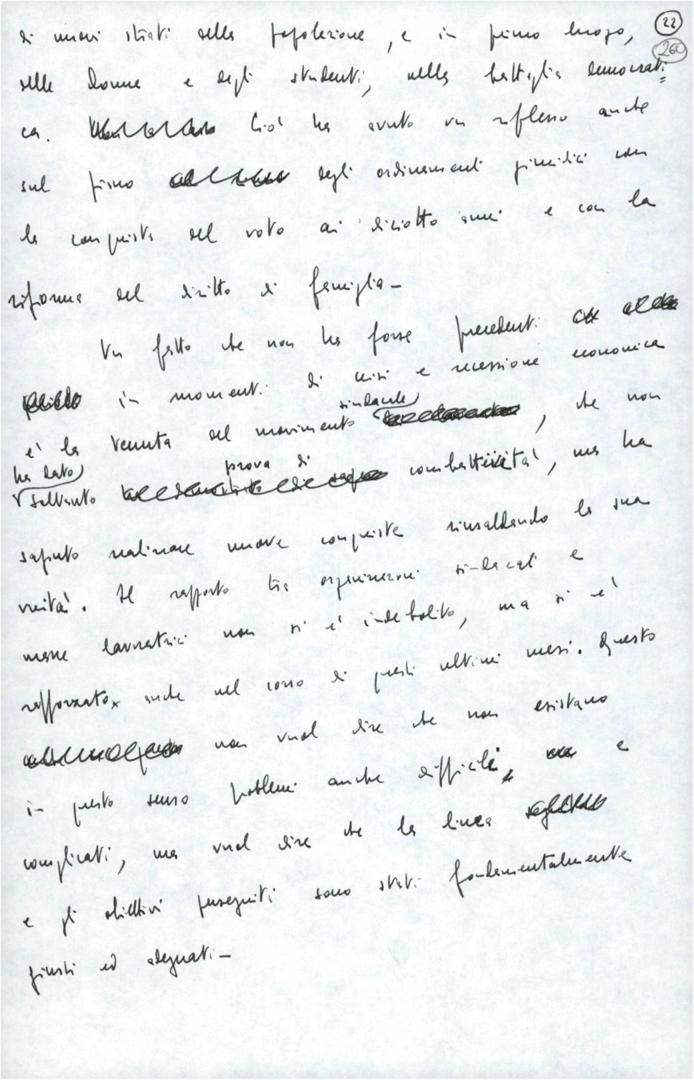 22
260
di nuovi strati della popolazione, e in primo luogo,
delle donne e degli studenti, nella battaglia democrati=
ca. Ciò ha avuto un riflesso anche
sul piano degli ordinamenti giuridici con
la conquista del voto ai diciotto anni e con la
riforma del diritto di famiglia –
Un fatto che non ha forse precedenti
in momenti di crisi e recessione economica
è la tenuta del movimento sindacale, che non
soltanto ha dato prova di combattività, ma ha
saputo realizzare nuove conquiste rinsaldando la sua
unità. Il rapporto tra organizzazioni sindacali e
masse lavoratrici non si è indebolito, ma si è
rafforzato anche nel corso di questi ultimi mesi. Questo
non vuol dire che non esistano
in questo senso problemi anche difficili, e
complicati, ma vuol dire che la linea
e gli obiettivi perseguiti sono stati fondamentalmente
giusti ed adeguati –